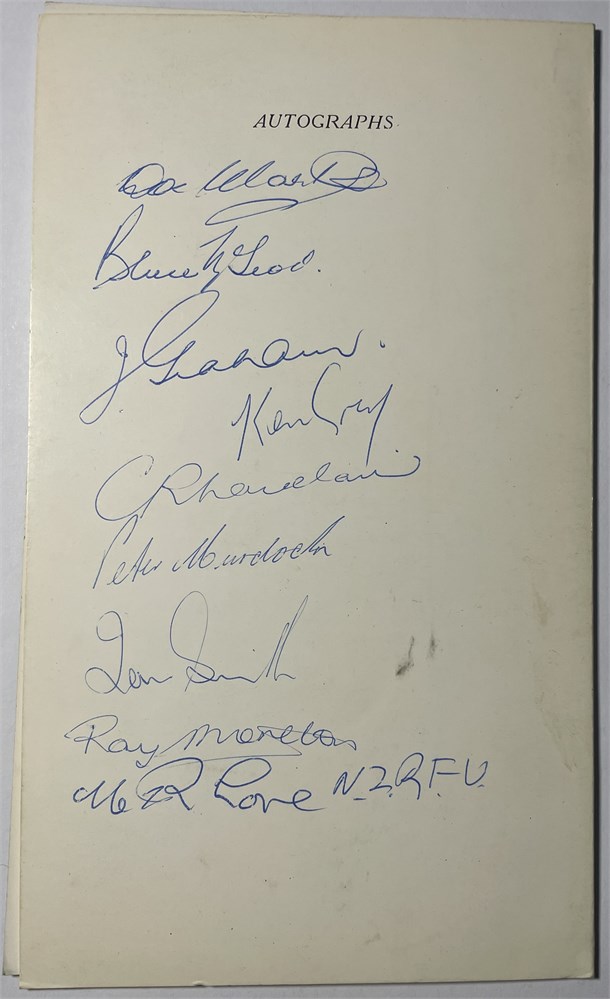 AUTOGRAPHS
Bruce McLeod.
J Graham.
Ken Gray
C R Laidlaw
Peter Murdoch
Ian Smith
Ray Moreton
R Love N.Z.R.F.U.